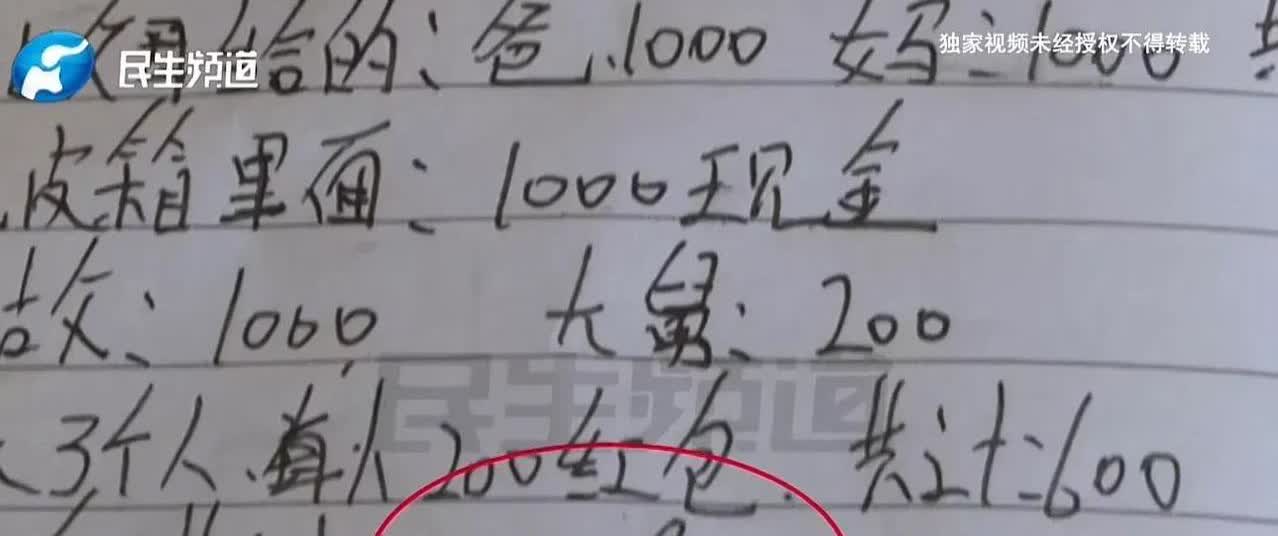 民生频道
独家视频未经授权不得转载
给的:爸:1000 妈:1000 共
皮箱里面:1000现金
故:1000 大舅:200
3个人、每人200红包. 共计:600
民生频道